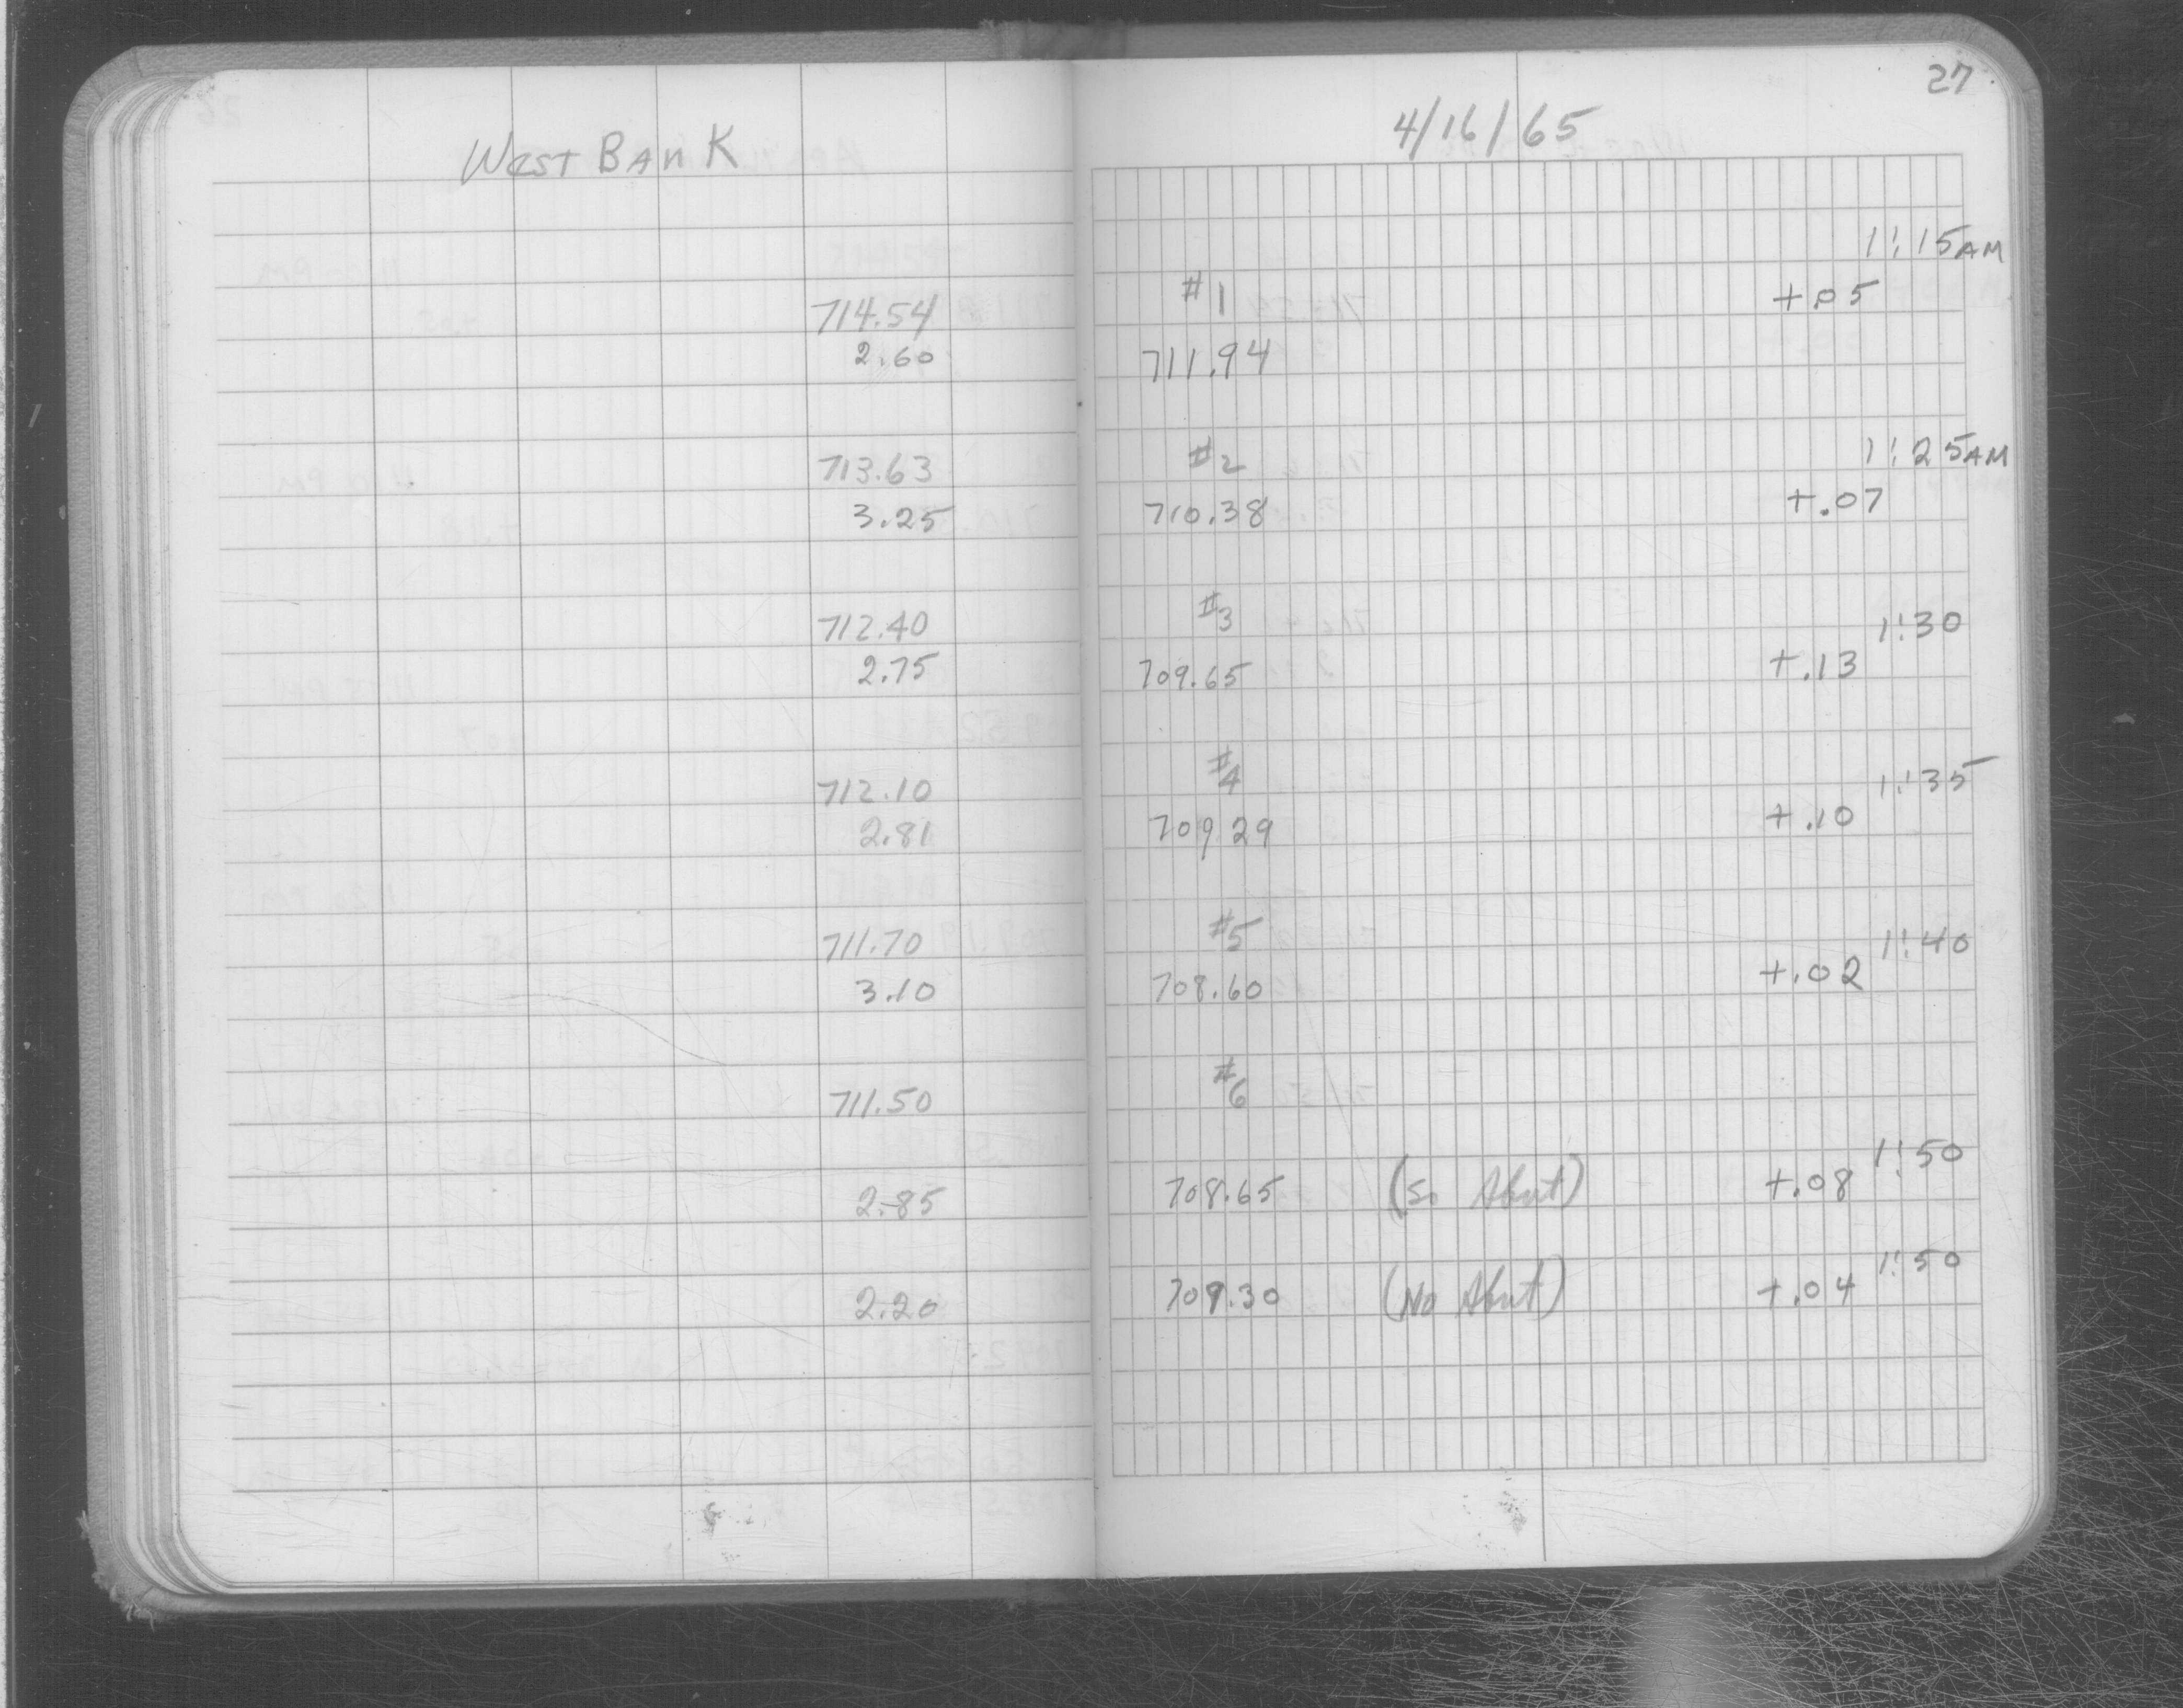 27
West Bank
4/16/65
1:15 AM
714.54 #1 +.05
2.60 711.94
1:25 AM
713.63 #2
3.25 710.38 +.07
712.40 #3 1:30
2.75 709.65 +.13
712.10 #4 1:35
2.81 709.29 +.10
711.70 #5 1:40
3.10 708.60 +.02
711.50 #6
1:50
2.85 708.65 (So Abut) +.08
1:50
2.20 709.30 (No Abut) +.04